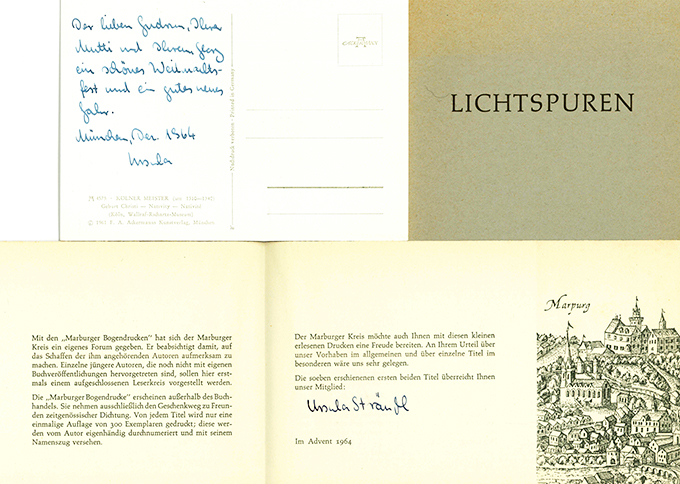 Der lieben Gudrun, Ihrer
Mutti und Ihrem Georg
ein schönes Weihnachts-
fest und ein gutes neues
Jahr.
München, Dez. 1964
Ursula
KÖLNER MEISTER
Geburt Christi — Nativity — Nativité
(Köln, Wallraf-Richartz-Museum)
F. A. Ackermanns Kunstverlag, München
Nachdruck verboten · Printed in Germany
LICHTSPUREN
Mit den „Marburger Bogendrucken" hat sich der Marburger
Kreis ein eigenes Forum gegeben. Er beabsichtigt damit, auf
das Schaffen der ihm angehörenden Autoren aufmerksam zu
machen. Einzelne jüngere Autoren, die noch nicht mit eigenen
Buchveröffentlichungen hervorgetreten sind, sollen hier erst-
mals einem aufgeschlossenen Leserkreis vorgestellt werden.
Die „Marburger Bogendrucke" erscheinen außerhalb des Buch-
handels. Sie nehmen ausschließlich den Geschenkweg zu Freun-
den zeitgenössischer Dichtung. Von jedem Titel wird nur eine
einmalige Auflage von 300 Exemplaren gedruckt; diese wer-
den vom Autor eigenhändig durchnumeriert und mit seinem
Namenszug versehen.
Der Marburger Kreis möchte auch Ihnen mit diesen kleinen
erlesenen Drucken eine Freude bereiten. An Ihrem Urteil über
unser Vorhaben im allgemeinen und über einzelne Titel im
besonderen wäre uns sehr gelegen.
Die soeben erschienenen ersten beiden Titel überreicht Ihnen
unser Mitglied:
Ursula
Im Advent 1964
Marpurg